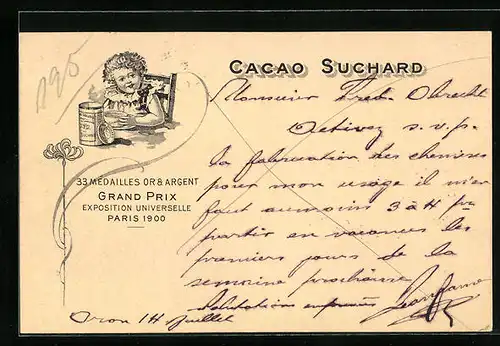 195
CACAO SUCHARD
33 MÉDAILLES OR & ARGENT
GRAND PRIX
EXPOSITION UNIVERSELLE
PARIS 1900
Monsieur Fred. Obrecht
Activez s.v.p.
la fabrication des chemises
pour mon usage il m'en
faut au moins 3 à 4 pr
partir en vacances les
premiers jours de la
semaine prochaine
salutations empressées
Oron 14 juillet